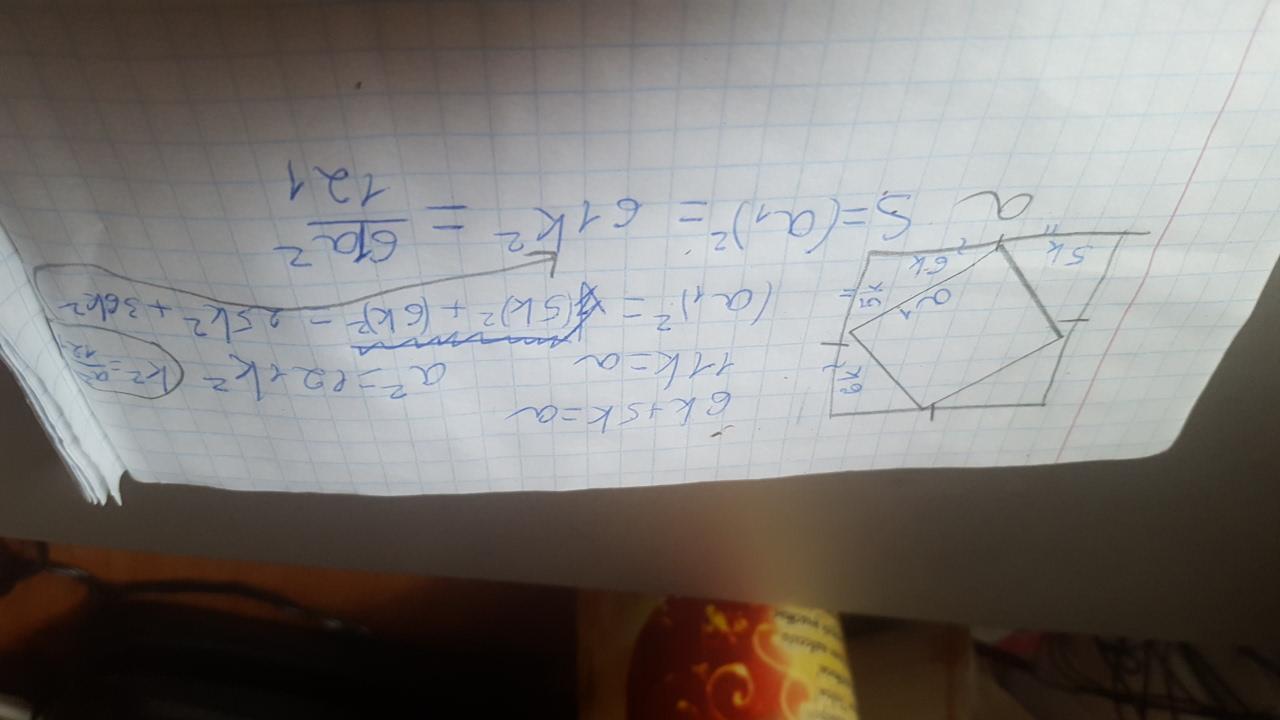 6k+5k=a
11k=a a²=121k² k²=a²/121
(a₁)²=(5k)²+(6k)²=25k²+36k²
S=(a₁)²=61k²=61a²/121
6k
5k
a₁
6k
5k
a